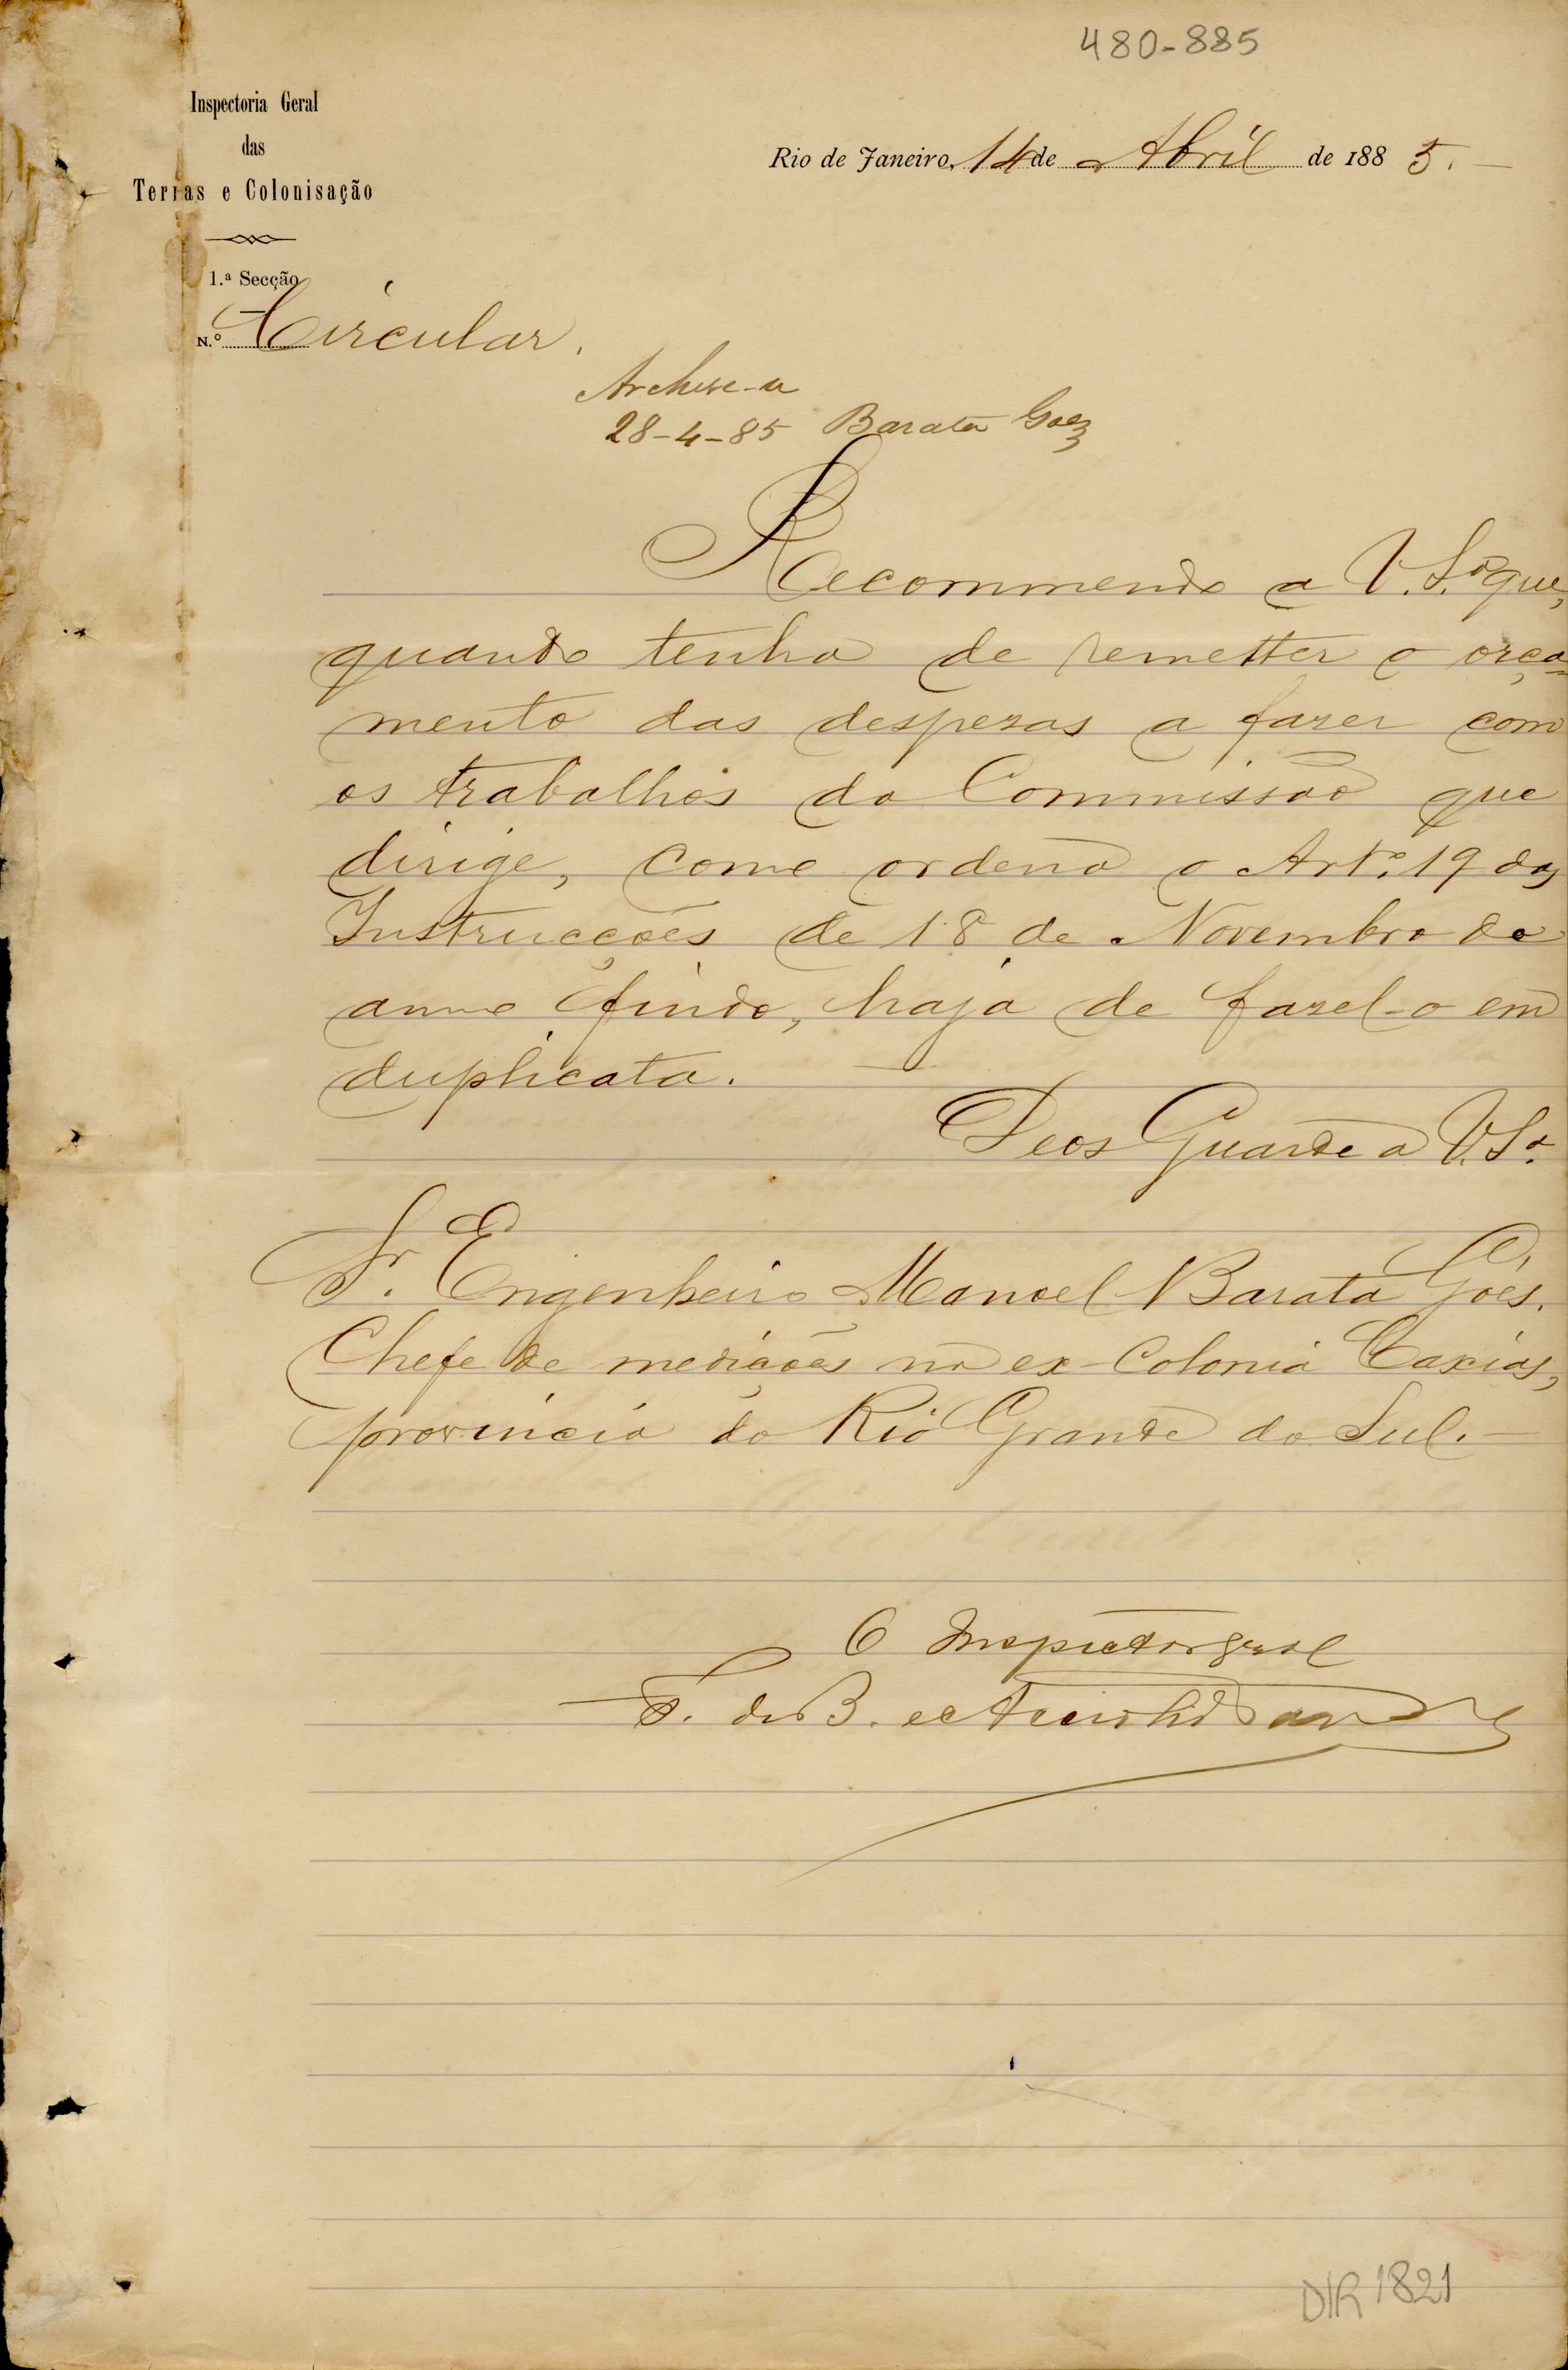 480-885
Inspectoria Geral
das
Terras e Colonisação
1.ª Secção
N.º Circular.
Rio de Janeiro, 14 de Abril de 1885.
Archive-se
28-4-85 Barata Goes
Recommendo a V. S.ª que,
quando tenha de remetter o orça-
mento das despezas a fazer com
os trabalhos da Commissão que
dirige, como ordena o Art.º 19 das
Instrucções de 18 de Novembro do
anno findo, haja de fazel-o em
duplicata.
Deos Guarde a V. S.ª
Sr. Engenheiro Manoel Barata Góes.
Chefe de medições na ex-Colonia Caxias,
provincia do Rio Grande do Sul.
O Inspector geral
F. de B. e Accioli de
DIR 1821